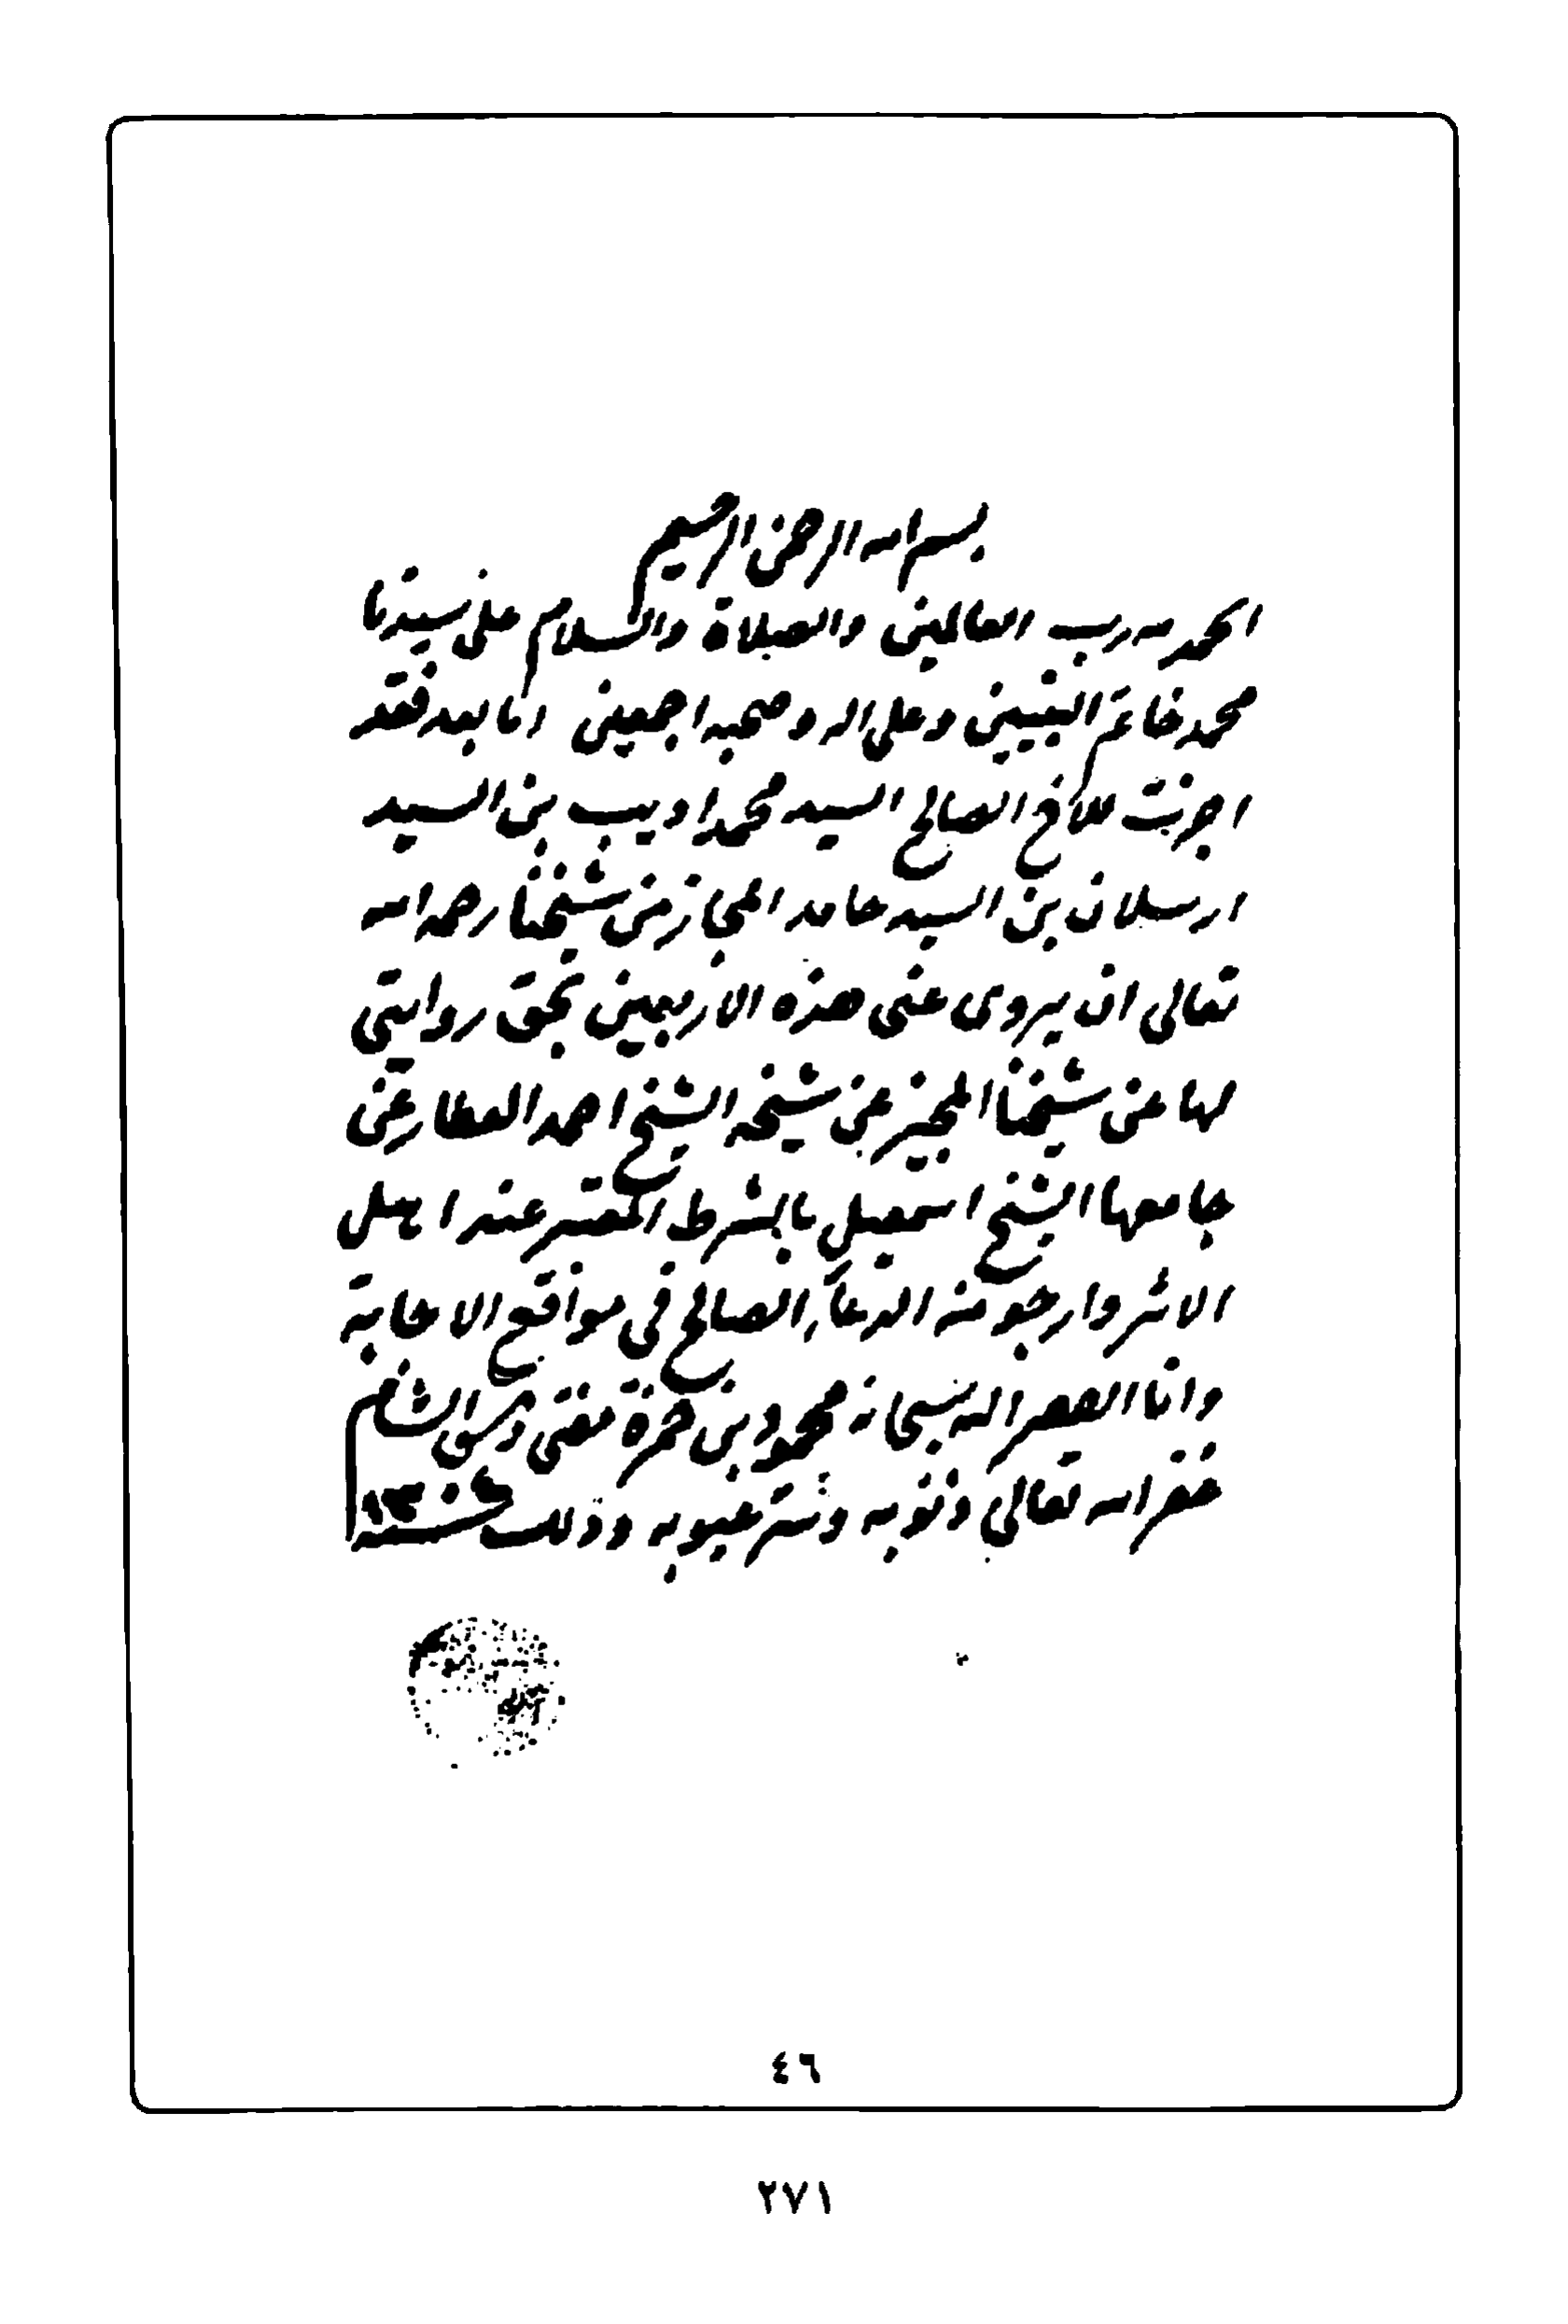 بسم الله الرحمن الرحيم
الحمد لله رب العالمين والصلاة والسلام على سيدنا
محمد خاتم النبيين وعلى اله وصحبه اجمعين اما بعد فقد
اجزت للاخ الصالح السيد محمد اديب بن السيد
ارسلان بن السيد حامد المجاز من شيخنا رحمه الله
تعالى ان يروى عنى هذه الاربعين بحق روايتي
لها عن شيخنا المجيز عن شيخه الشيخ احمد العطار عن
جامعها الشيخ اسمعيل بالشرط المعتبر عند اهل
الاثر وارجو منه الدعاء الصالح في مواقع الاجابة
وانا الفقير اليه سبحانه محمود بن حمزة مفتى دمشق الشام
غفر الله تعالى ذنوبه وستر عيوبه وذلك سنة
٤٦
٢٧١